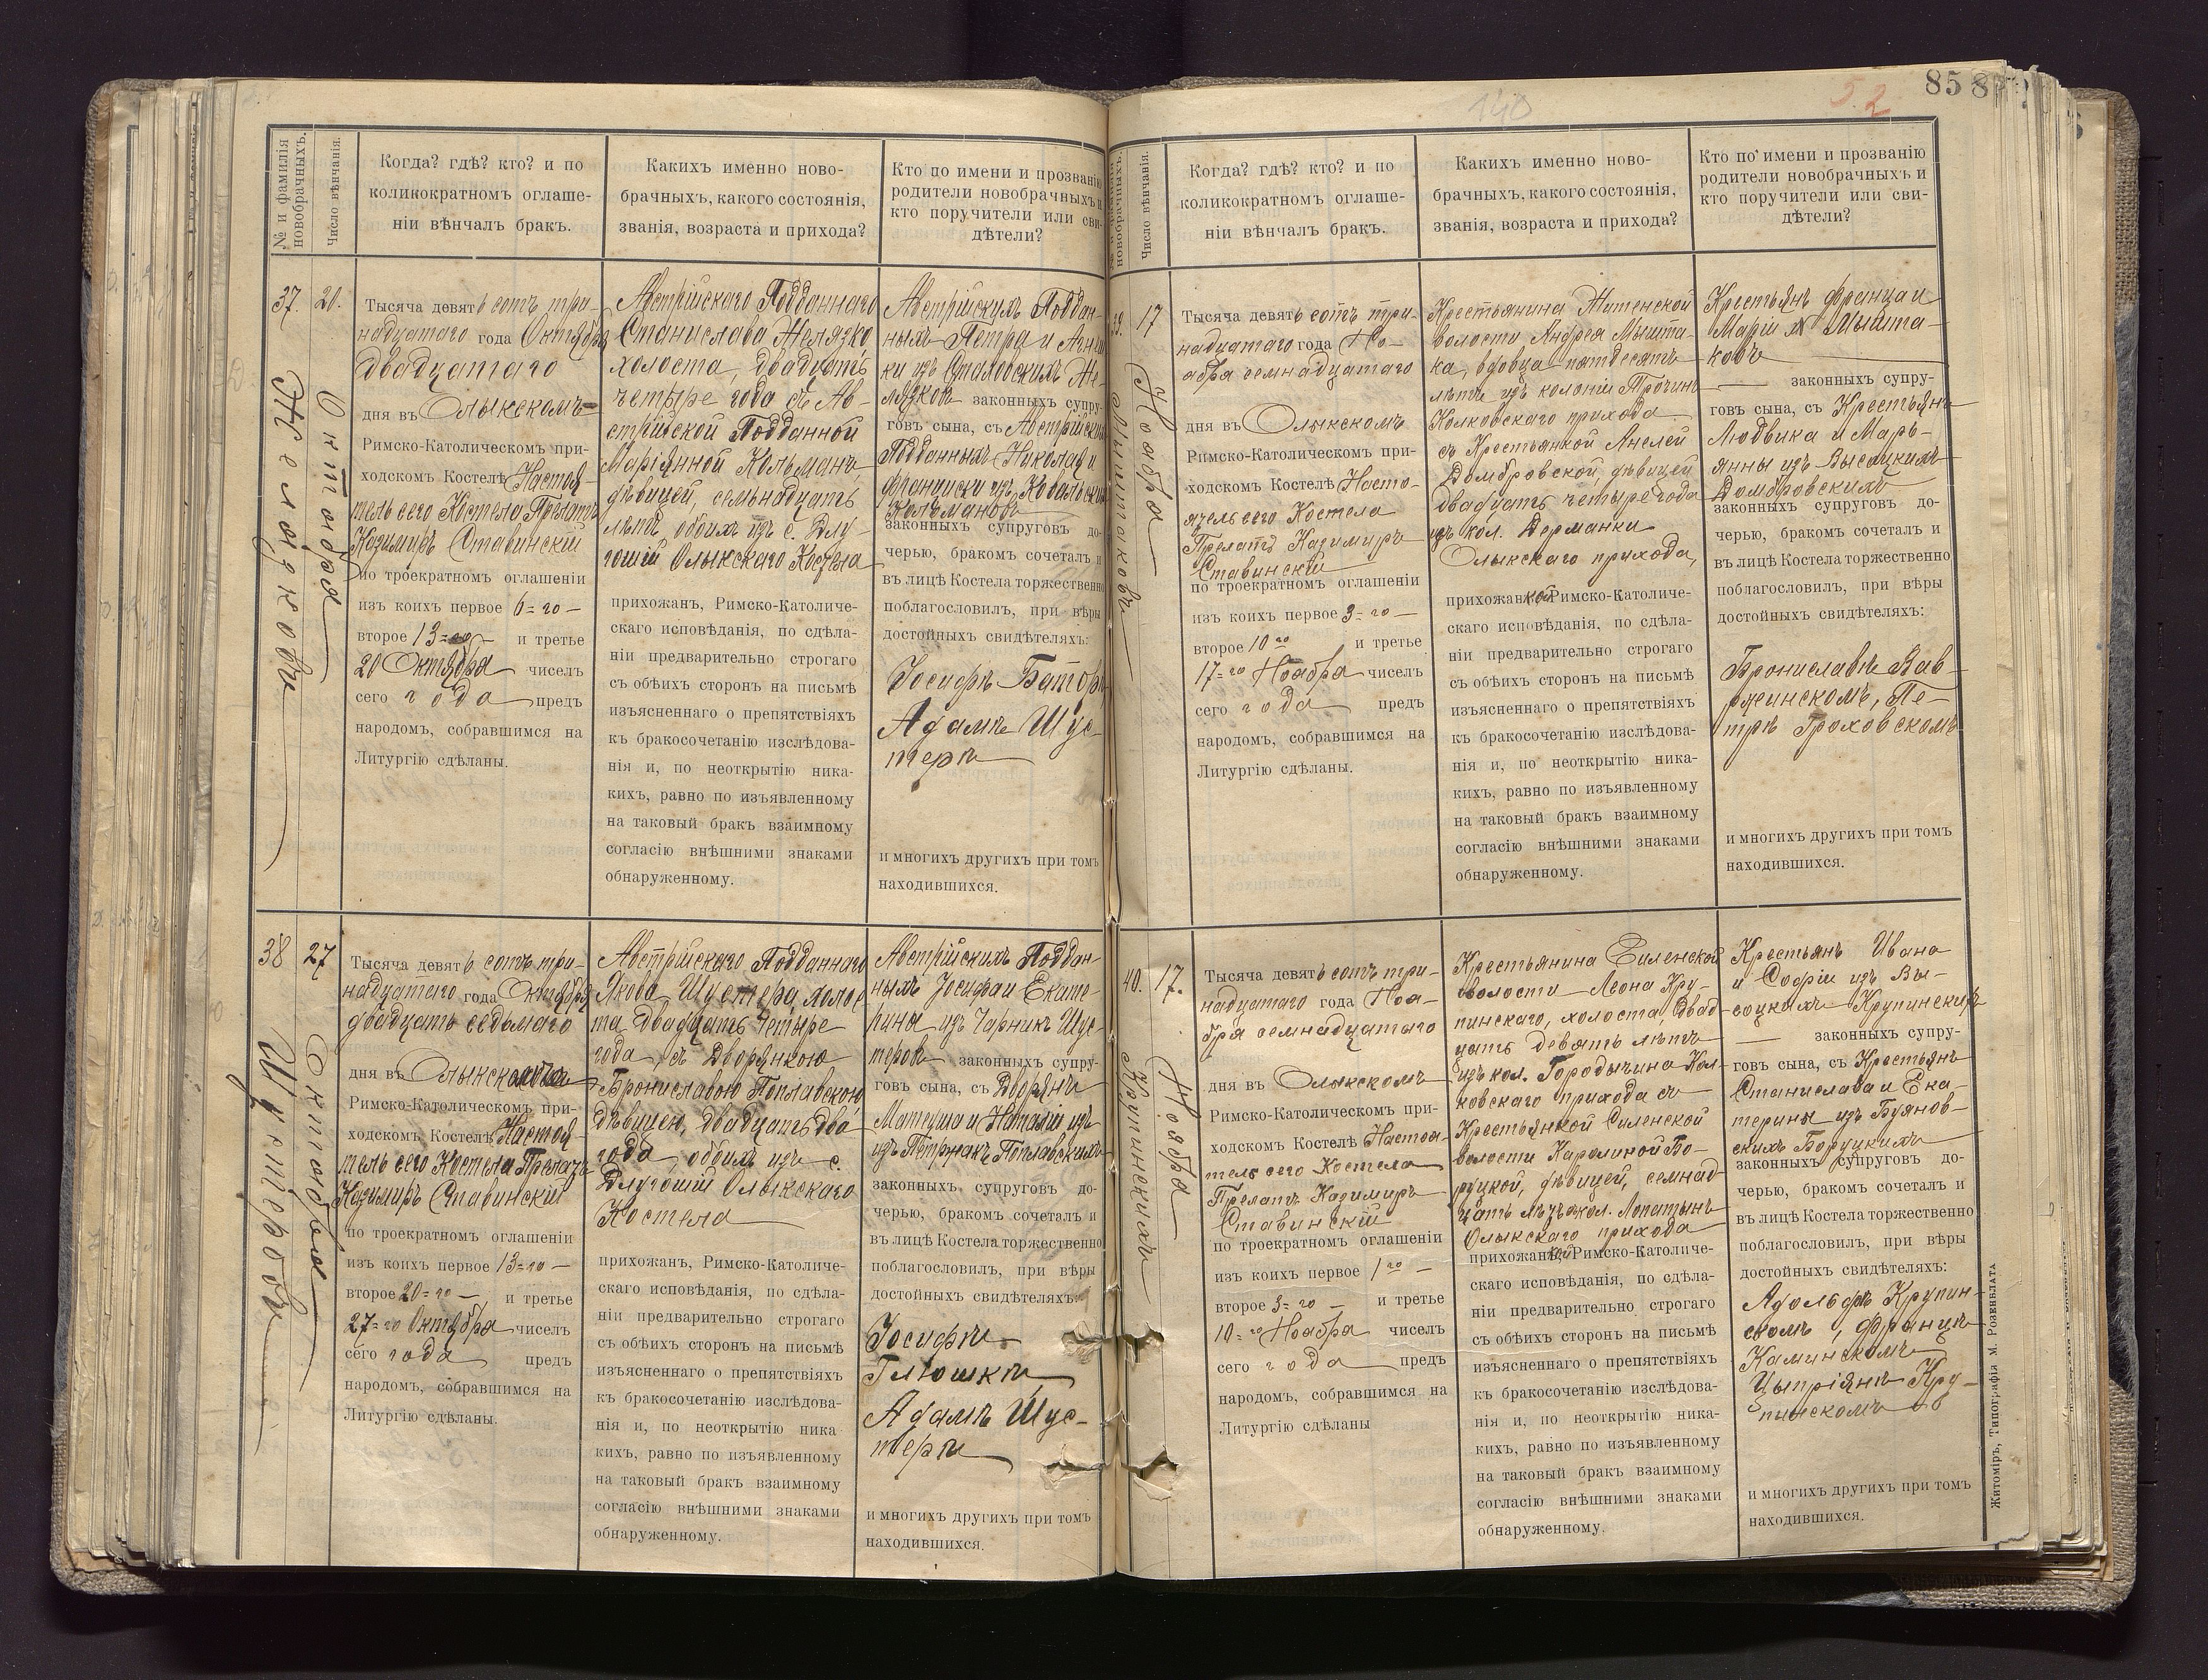 140
52
85
№ и фамилія новобрачныхъ.
Число вѣнчанія.
Когда? гдѣ? кто? и по
коликократномъ оглаше-
ніи вѣнчалъ бракъ.
Какихъ именно ново-
брачныхъ, какого состоянія,
званія, возраста и прихода?
Кто по имени и прозванію
родители новобрачныхъ и
кто поручители или сви-
дѣтели?
37.
20.
Октября
Желязковъ
Тысяча девятьсотъ три-
надцатаго года Октября
двадцатаго
дня въ Олыкскомъ
Римско-Католическомъ при-
ходскомъ Костелѣ Настоя-
тель сего Костела Прелатъ
Казимиръ Ставинскій
по троекратномъ оглашеніи
изъ коихъ первое 6=го
второе 13=го и третье
20 Октября чиселъ
сего года предъ
народомъ, собравшимся на
Литургію сдѣланы.
Австрійскаго Подданнаго
Станислава Желязко
холоста, двадцать
четыре года съ Ав-
стрійской Подданной
Маріянной Кольманъ,
дѣвицей, семьнадцать
лѣтъ обоихъ изъ с. Длу-
гошій Олыкскаго Костела
прихожанъ, Римско-Католиче-
скаго исповѣданія, по сдѣла-
ніи предварительно строгаго
съ обѣихъ сторонъ на письмѣ
изъясненнаго о препятствіяхъ
къ бракосочетанію изслѣдова-
нія и, по неоткрытію ника-
кихъ, равно по изъявленному
на таковый бракъ взаимному
согласію внѣшними знаками
обнаруженному.
Австрійскихъ Поддан-
ныхъ Петра и Агнеш-
ки изъ Сталовскихъ Же-
лязковъ законныхъ супру-
говъ сына, съ Австрійскихъ
Подданныхъ Николая и
Франциски изъ Ковальскихъ
Кольмановъ
законныхъ супруговъ до-
черью, бракомъ сочеталъ и
въ лицѣ Костела торжественно
поблагословилъ, при вѣры
достойныхъ свидѣтеляхъ:
Іосифъ Баторъ,
Адамъ Шус-
теръ
и многихъ другихъ при томъ
находившихся.
38
27
Октября
Шустеровъ
Тысяча девятьсотъ три-
надцатаго года Октября
двадцать седьмаго
дня въ Олыкскомъ
Римско-Католическомъ при-
ходскомъ Костелѣ Настоя-
тель сего Костела Прелатъ
Казимиръ Ставинскій
по троекратномъ оглашеніи
изъ коихъ первое 13=го
второе 20=го и третье
27=го Октября чиселъ
сего года предъ
народомъ, собравшимся на
Литургію сдѣланы.
Австрійскаго Подданнаго
Якова Шустера, холос-
та двадцать четыре
года, съ Дворянкою
Брониславою Поплавскою
дѣвицею, двадцать два
года, обоихъ изъ с.
Длугошій Олыкскаго
Костела
прихожанъ, Римско-Католиче-
скаго исповѣданія, по сдѣла-
ніи предварительно строгаго
съ обѣихъ сторонъ на письмѣ
изъясненнаго о препятствіяхъ
къ бракосочетанію изслѣдова-
нія и, по неоткрытію ника
кихъ, равно по изъявленному
на таковый бракъ взаимному
согласію внѣшними знаками
обнаруженному.
Австрійскихъ Поддан-
ныхъ Іосифа и Екате-
рины изъ Чарникъ Шус-
теровъ законныхъ супру-
говъ сына, съ Дворянъ
Матуша и Наталіи изъ
изъ Петрнакъ Поплавскихъ
законныхъ супруговъ до-
черью, бракомъ сочеталъ и
въ лицѣ Костела торжественно
поблагословилъ, при вѣры
достойныхъ свидѣтеляхъ:
Іосифъ
Глюшкъ
Адамъ Шус-
теръ
и многихъ другихъ при томъ
находившихся.
Число вѣнчанія.
Когда? гдѣ? кто? и по
коликократномъ оглаше-
ніи вѣнчалъ бракъ.
Какихъ именно ново-
брачныхъ, какого состоянія,
званія, возраста и прихода?
Кто по имени и прозванію
родители новобрачныхъ и
кто поручители или сви-
дѣтели?
39.
17
Ноября
Мыштаковъ
Тысяча девятьсотъ три-
надцатаго года Но-
ября семнадцатаго
дня въ Олыкскомъ
Римско-Католическомъ при-
ходскомъ Костелѣ Насто-
ятель сего Костела
Прелатъ Казимиръ
Ставинскій
по троекратномъ оглашеніи
изъ коихъ первое 3=го
второе 10 го и третье
17=го Ноября чиселъ
сего года предъ
народомъ, собравшимся на
Литургію сдѣланы.
Крестьянина Жатенской
волости Андрея Мышта-
ка, вдовца пятдесятъ
лѣтъ изъ колоніи Трочинъ
Колковскаго прихода
съ Крестьянкой Анелей
Домбровской, дѣвицей
двадцать четыре года
изъ кол. Дерманки
Олыкскаго прихода,
прихожанкой Римско-Католиче-
скаго исповѣданія, по сдѣла-
ніи предварительно строгаго
съ обѣихъ сторонъ на письмѣ
изъясненнаго о препятствіяхъ
къ бракосочетанію изслѣдова-
нія и, по неоткрытію ника-
кихъ, равно по изъявленному
на таковый бракъ взаимному
согласію внѣшними знаками
обнаруженному.
Крестьянъ Франца и
Маріи Мышта-
ковъ
законныхъ супру-
говъ сына, съ Крестьянъ
Людвика и Марь-
янны изъ Высоцкихъ
Домбровскихъ
законныхъ супруговъ до-
черью, бракомъ сочеталъ и
въ лицѣ Костела торжественно
поблагословилъ, при вѣры
достойныхъ свидѣтеляхъ:
Брониславѣ Вав-
ржинскомъ, Пе-
трѣ Гроховскомъ
и многихъ другихъ при томъ
находившихся.
40.
17.
Ноября
Крупинскихъ
Тысяча девятьсотъ три-
надцатаго года Ноя-
бря семнадцатаго
дня въ Олыкскомъ
Римско-Католическомъ при-
ходскомъ Костелѣ Настоя-
тель сего Костела
Прелатъ Казимиръ
Ставинскій
по троекратномъ оглашеніи
изъ коихъ первое 1 го
второе 3=го и третье
10=го Ноября чиселъ
сего года предъ
народомъ, собравшимся на
Литургію сдѣланы
Крестьянина Силенской
волости Леона Кру-
пинскаго, холоста, двад-
цать девять лѣтъ
изъ кол. Городычина Кол-
ковскаго прихода съ
Крестьянкой Силенской
волости Каролиной Бо-
руцкой, дѣвицей, семнад-
цать лѣтъ кол. Лопатынъ
Олыкскаго прихода
прихожанкой Римско-Католиче-
скаго исповѣданія, по сдѣла-
ніи предварительно строгаго
съ обѣихъ сторонъ на письмѣ
изъясненнаго о препятствіяхъ
къ бракосочетанію изслѣдова-
нія и, по неоткрытію ника-
кихъ, равно по изъявленному
на таковый бракъ взаимному
согласію внѣшними знаками
обнаруженному.
Крестьянъ Ивана
и Софіи изъ Вы-
соцкихъ Крупинскихъ
законныхъ супру-
говъ сына, съ Крестьянъ
Станислава и Ека-
терины изъ Буянов-
скихъ Боруцкихъ
законныхъ супруговъ до-
черью, бракомъ сочеталъ и
въ лицѣ Костела торжественно
поблагословилъ, при вѣры
достойныхъ свидѣтеляхъ:
Адольфѣ Крупин-
скомъ, Францѣ
Каминскомъ
Цыпріянѣ Кру-
пинскомъ
и многихъ другихъ при томъ
находившихся.
Житоміръ, Типографія М. Розенблата